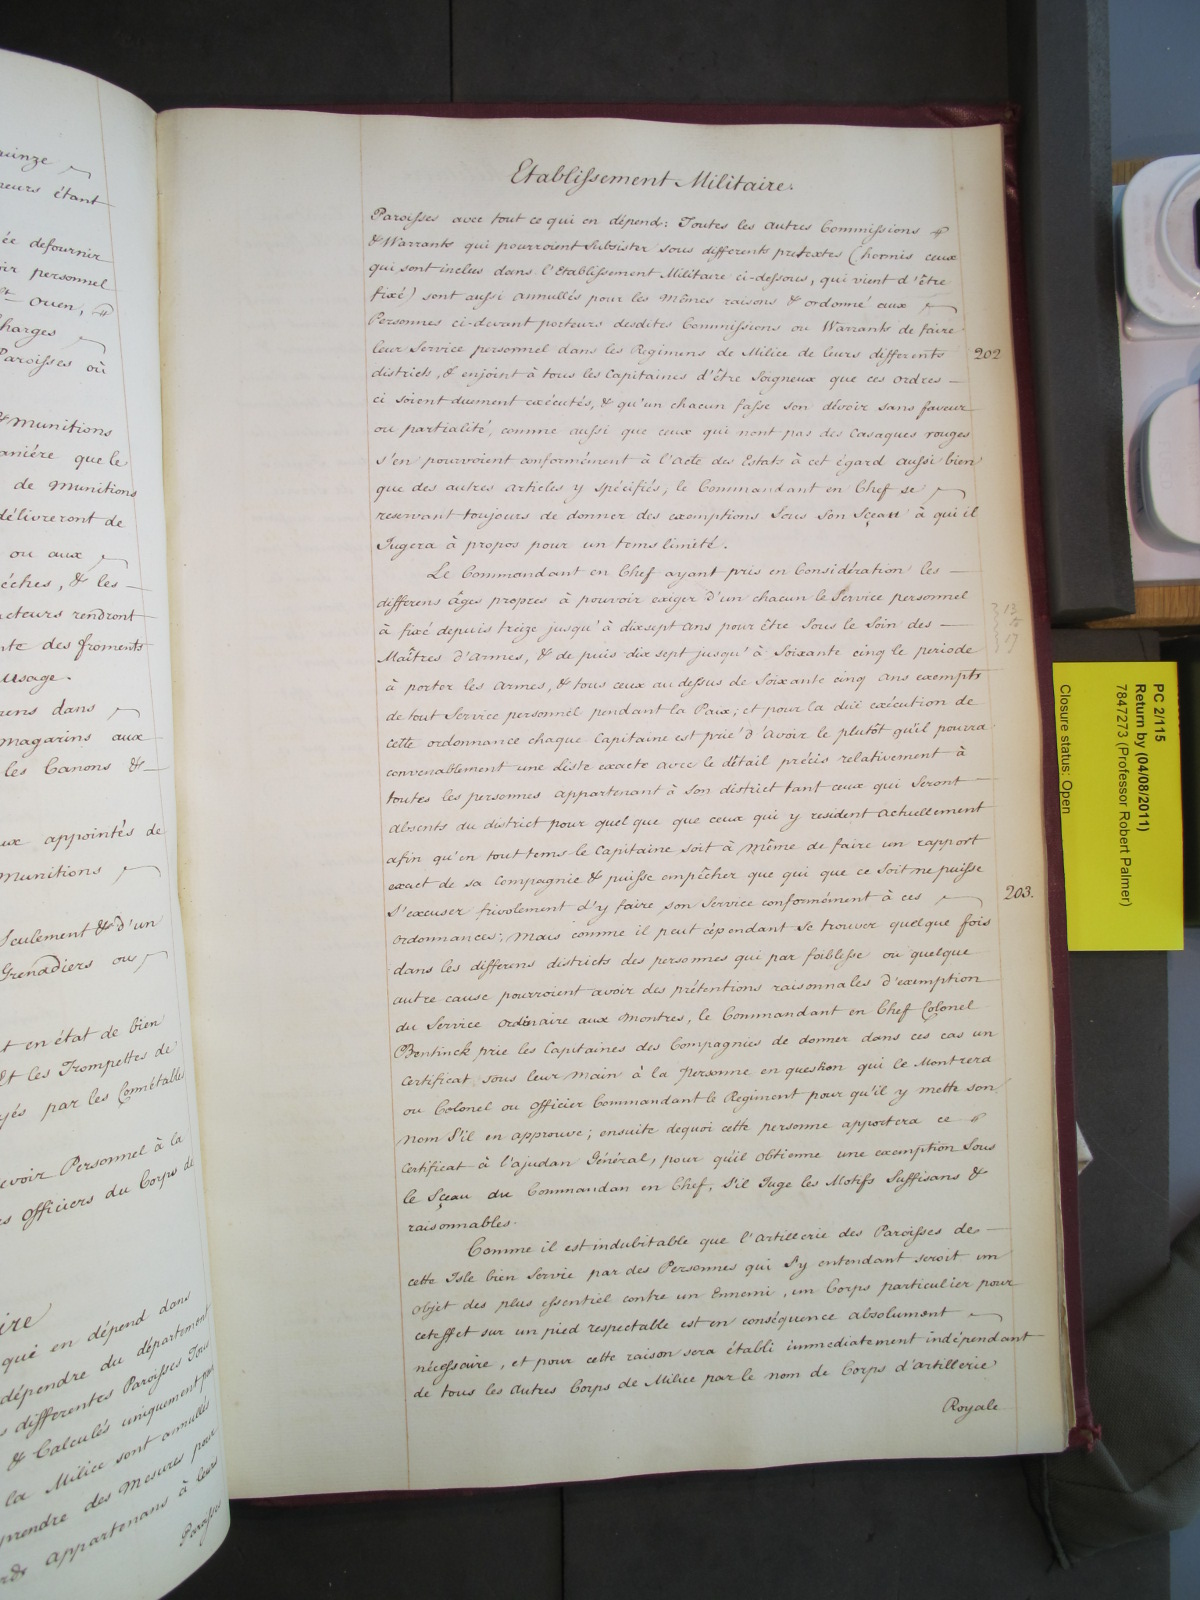 uinze
neurs étant
ée defournir
oir personnel
Ouen,
Charges
Paroisses où
& munitions
aniére que le
de munitions
délivreront de
ou aux
éches, & les
acteurs rendront
nte des froments
usage.
rens dans
magazins aux
les Canons &
ux appointés de
munitions
Seulement & d'un
Grenadiers ou
t en état de bien
Et les Trompettes de
yés par les Connétables
evoir Personnel à la
s officiers du Corps de
ire
que en dépend dans
dépendre du département
s differentes Paroisses Tous
& Calculés uniquement pour
la Milice sont annullés
prendre des Mesures pour
appartenans à leurs
Paroisses
Etablissement Militaire.
Paroisses avec tout ce qui en dépend: Toutes les autres Commissions
& Warrants qui pourroient Subsister sous differents pretextes (hormis ceux
qui sont inclus dans l'Etablissement Militaire ci-dessous, qui vient d'être
fixé) sont aussi annullés pour les Mêmes raisons & ordonné aux
Personnes ci-devant porteurs desdites Commissions ou Warrants de faire
leur Service personnel dans les Regimens de Milice de leurs differents
202
districts, & enjoint à tous les Capitaines d'être Soigneux que ces ordres —
ci soient duement exécutés, & qu'un chacun fasse son dévoir sans faveur
ou partialité, comme aussi que ceux qui nont pas des Casaques rouges
s'en pourvoient conformément à l'Acte des Estats à cet égard aussi bien
que des autres articles y spécifiés; le Commandant en Chef se
reservant toujours de donner des exemptions Sous Son Sçeau à qui il
Jugera à propos pour un tems limité.
Le Commandant en Chef ayant pris en Considération les —
differens âges propres à pouvoir exiger d'un chacun le Service personnel
à fixé depuis treize jusqu'à dixsept ans pour être Sous le Soin des —
Maîtres d'Armes, & de puis dix sept jusqu'à Soixante cinq le periode
à porter les Armes, & tous ceux au dessus de Soixante cinq ans exempts
de tout Service personnel pendant la Paix; et pour la düe exécution de
cette ordonnance chaque Capitaine est prié d'avoir le plutôt qu'il pourra
convenablement une Liste exacte avec le détail précis relativement à
toutes les personnes appartenant à son district tant ceux qui Seront —
absents du district pour quel que que ceux qui y resident actuellement
afin qu'en tout tems le Capitaine soit à Même de faire un rapport
exact de sa Compagnie & puisse empêcher que qui que ce Soit ne puisse
S'excuser frivolement d'y faire son Service conformément à ces
203.
ordonnances; Mais comme il peut cépendant se trouver quelque fois
dans les differens districts des personnes qui par foiblesse ou quelque
autre cause pourroient avoir des prétentions raisonnales d'exemption
du Service ordinaire aux Montres, le Commandant en Chef Colonel
Bentinck prie les Capitaines des Compagnies de donner dans ces cas un
Certificat sous leur Main à la Personne en question qui le Montrera
ou Colonel ou Officier Commandant le Regiment pour qu'il y mette son
nom S'il en approuve; ensuite dequoi cette personne apportera ce
Certificat à l'ajudan Général, pour qu'il obtienne une exemption Sous
le Sçeau du Commandan en Chef, S'il Juge les Motifs Suffisans &
raisonnables.
Comme il est indubitable que l'artillerie des Paroisses de —
cette Isle bien Servie par des Personnes qui S'y entendant seroit un
objet des plus essentiel contre un Ennemi, un Corps particulier pour
ceteffet sur un pied respectable est en conséquence absolument
nécessaire, et pour cette raison sera établi immediatement indépendant
de tous les autres Corps de Milice par le nom de Corps d'artillerie
Royale
PC 2/115
Return by (04/08/2011)
7847273 (Professor Robert Palmer)
Closure status: Open